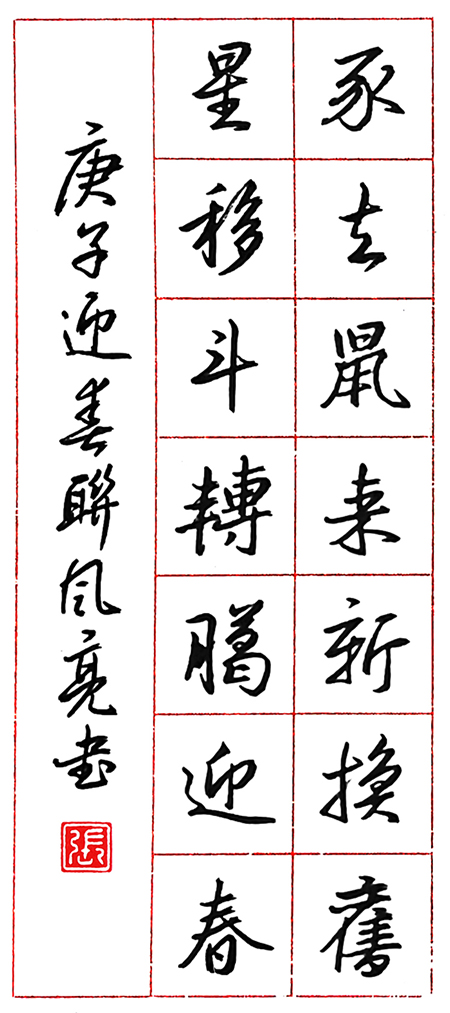 豕去鼠来新換舊
星移斗轉臈迎春
庚子迎春聯风亮書
張